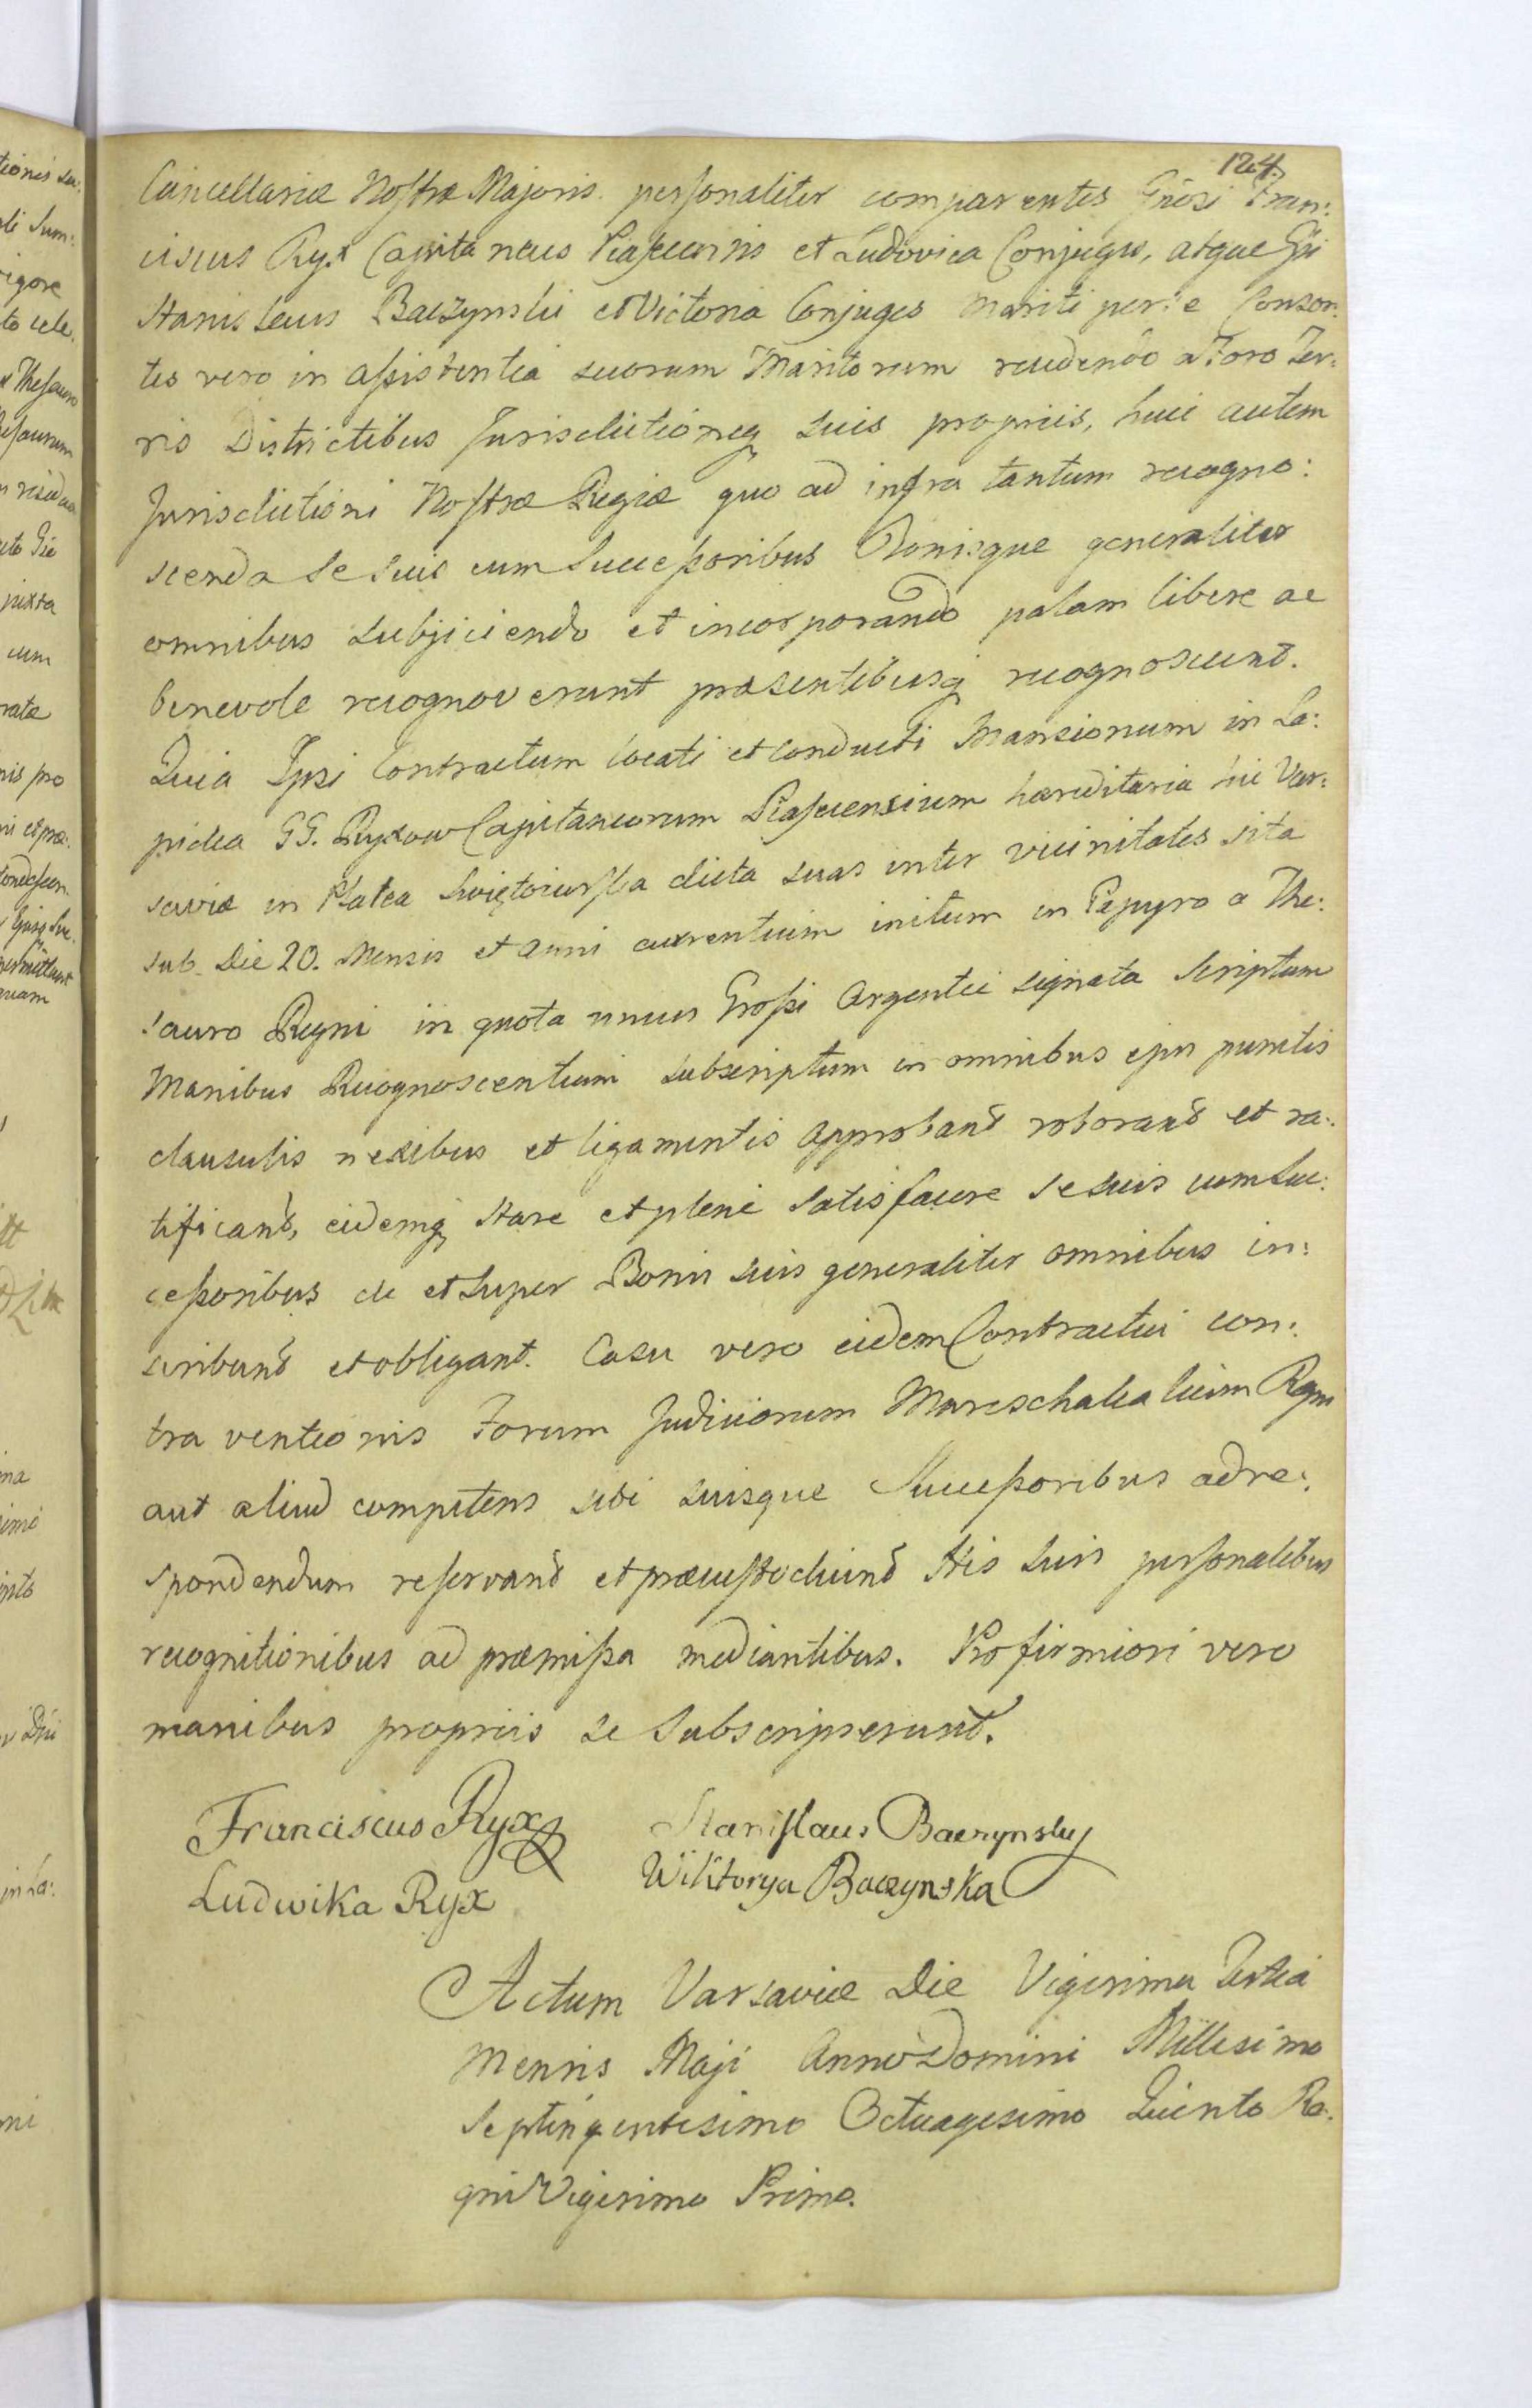 124.
Cancellariæ Nostræ Majoris personaliter comparentes Gñosi Fran:
ciscus Ryx Capitaneus Piasecinis et Ludovica Conjuges, atque
Stanislaus Baczynski et Victoria Conjuges Mariti per se Conzor:
tes vero in aßistentia suorum Maritorum recedendo a Foro Ter:
ris Districtibus Jurisdictioneq suis propriis, huic autem
Jurisdictioni Nostræ Regiæ quo ad infra tantum recogno:
scenda se suis cum Succeßoribus Bonisque generaliter
omnibus subjiciendo et incorporando palam libere ac
benevole recognoverunt præsentibusq recognoscunt.
Quia Ipsi Contractum locati et conducti Mansionum in La:
pidea GG. Ryxow Capitaneorum Piasecensium hæreditaria hic Var:
saviæ in Platea Swiętoiurska dicta suas inter vicinitates sita
sub Die 20. Mensis et Anni currentium initum in Papyro a The:
sauro Regni in quota unius Großi Argentei signata Scriptum
Manibus Recognoscentium subscriptum in omnibus ejus punctis
clausulis nexibus et ligamentis approbant roborant et ra:
tificant, eidemq stare et plene satisfacere se suis cum Suc:
ceßoribus de et super Bonis suis generaliter omnibus in:
scribunt et obligant. Casu vero eidem Contractui con:
traventionis Forum Judiciorum Mareschalcalium Regni
aut aliud competens sibi suisque Succeßoribus ad re:
spondendum reservant et præcustodiunt His suis personalibus
recognitionibus ad præmißa mediantibus. Pro firmiori vero
manibus propriis se subscripserunt.
Franciscus Ryx
Stanislaus Baczynsky
Ludwika Ryx
Wiktorya Baczynska
Actum Varsaviæ Die Vigesima Tertia
Mensis Maji Anno Domini Millesimo
Septingentesimo Octuagesimo Quinto Re:
gni Vigesimo Primo.